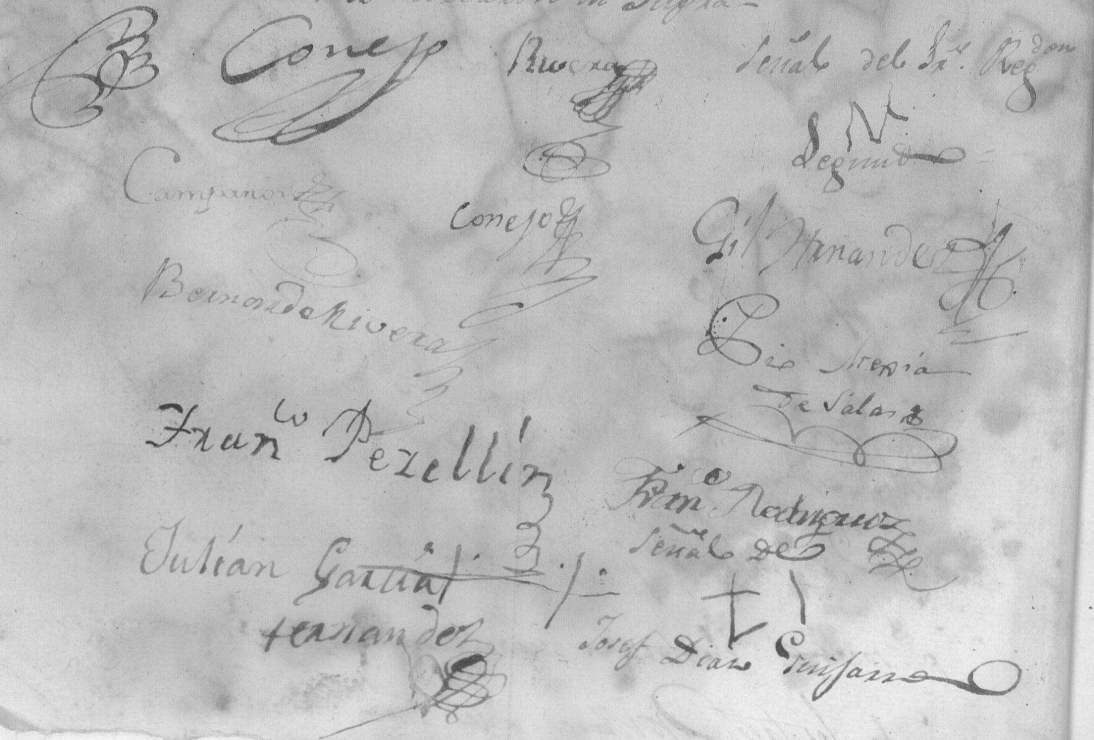 Conejo Rivera Señal del Sr. Regdor
Segundo
Campanon
Conejo
Gil Hernandez
Bernardo Rivera
Pio Mexia
de Salas
Franco Perellin
Franco Rodriguez
Señal de
Julián García
Fernandez
Josef Diaz Guijarro